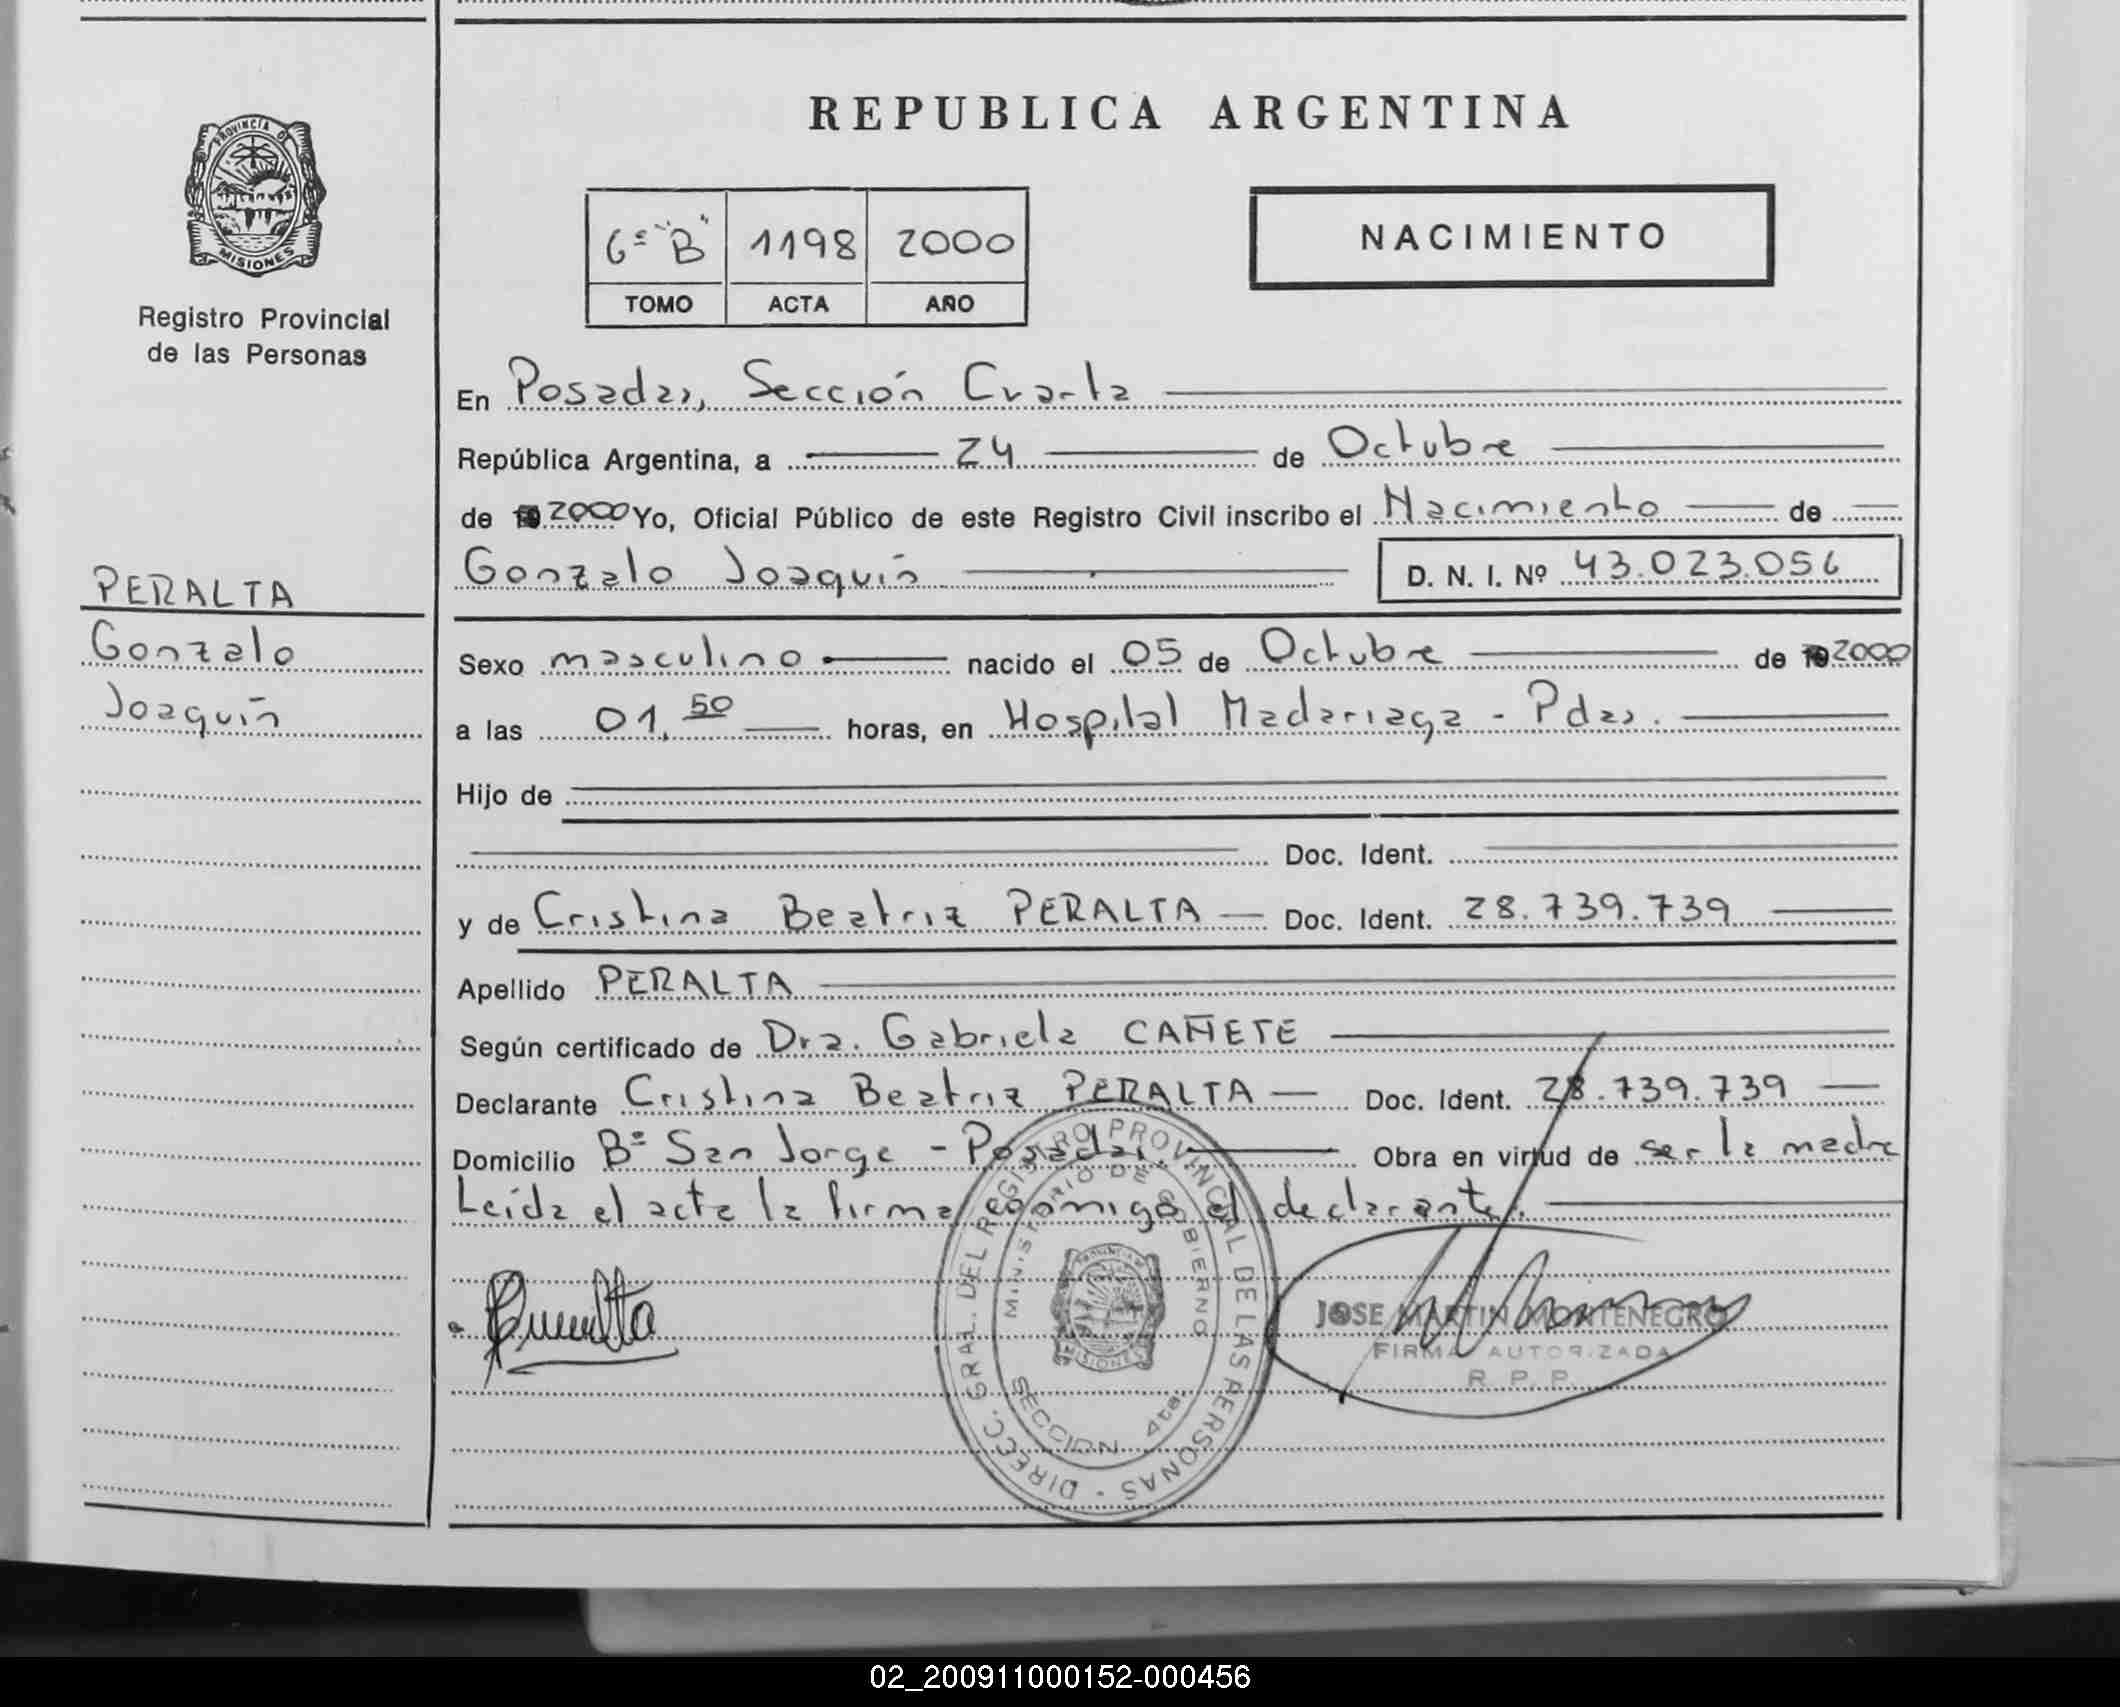 REPUBLICA ARGENTINA
PROVINCIA DE
MISIONES
Registro Provincial
de las Personas
6º "B" 1198 2000
TOMO ACTA AÑO
NACIMIENTO
En Posadas, Sección Cuarta
República Argentina, a 24 de Octubre
de 2000 Yo, Oficial Público de este Registro Civil inscribo el Nacimiento de
Gonzalo Joaquín D. N. I. Nº 43.023.056
PERALTA
Gonzalo
Joaquín
Sexo masculino nacido el 05 de Octubre de 2000
a las 01,50 horas, en Hospital Madariaga - Pdas.
Hijo de
Doc. Ident.
y de Cristina Beatriz PERALTA Doc. Ident. 28.739.739
Apellido PERALTA
Según certificado de Dra. Gabriela CAÑETE
Declarante Cristina Beatriz PERALTA Doc. Ident. 28.739.739
Domicilio Bº San Jorge - Posadas Obra en virtud de ser la madre
Leída el acta la firma conmigo el declarante.
Peralta
DIRECC. GRAL. DEL REGISTRO PROVINCIAL DE LAS PERSONAS
MINISTERIO DE GOBIERNO
PROVINCIA DE
MISIONES
SECCION 4ta.
JOSE MARTIN MONTENEGRO
FIRMA AUTORIZADA
R. P. P.
02_200911000152-000456